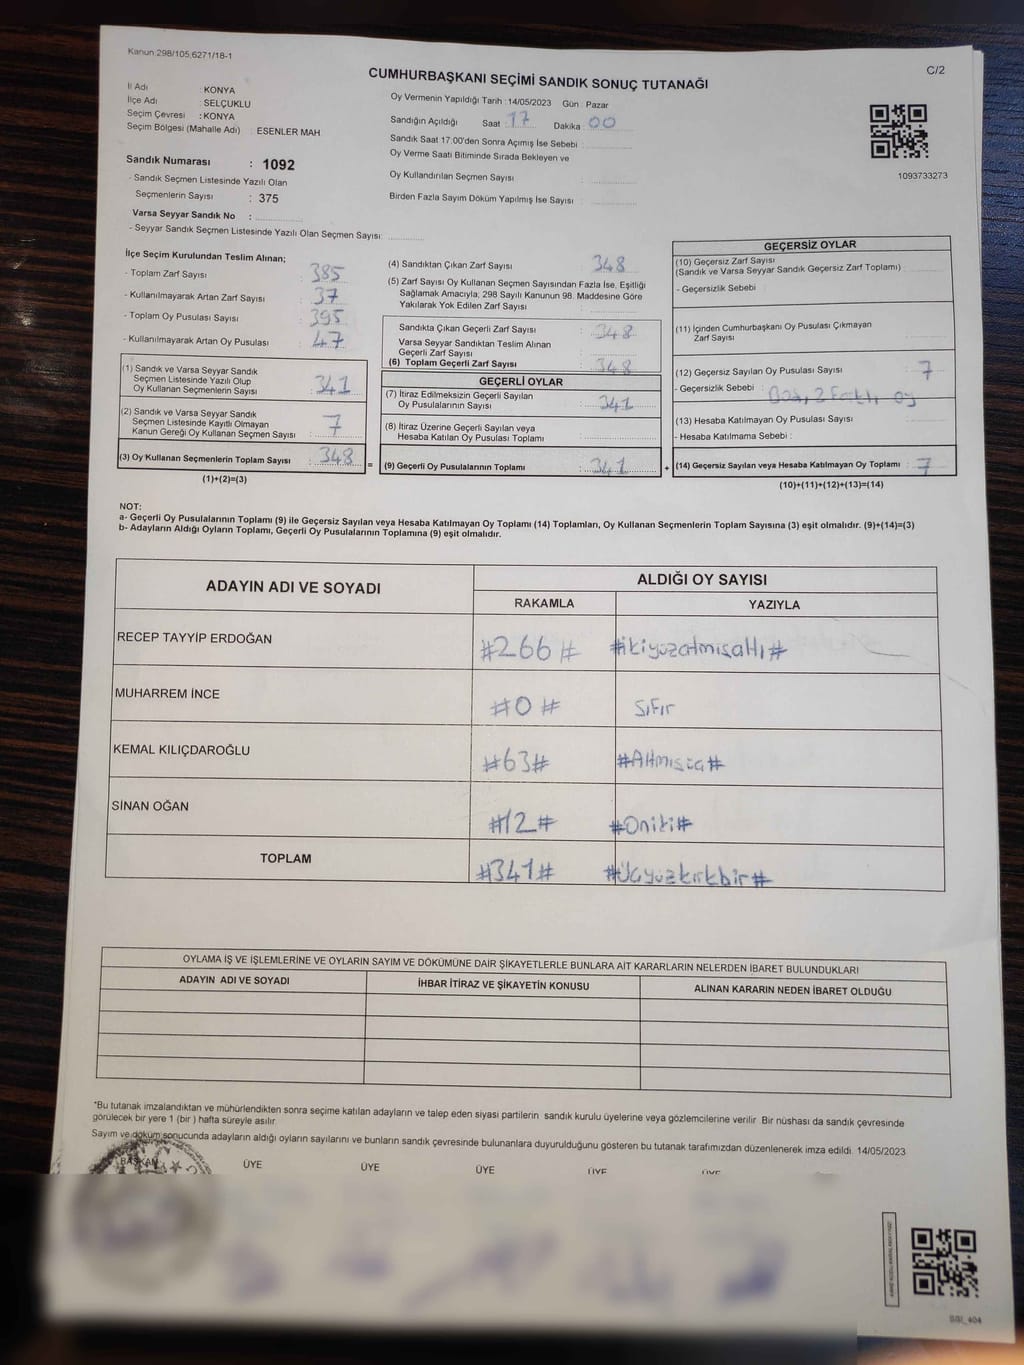 Kanun:298/105,6271/18-1
C/2
CUMHURBAŞKANI SEÇİMİ SANDIK SONUÇ TUTANAĞI
İl Adı : KONYA
İlçe Adı : SELÇUKLU
Seçim Çevresi : KONYA
Seçim Bölgesi (Mahalle Adı) : ESENLER MAH
Oy Vermenin Yapıldığı Tarih : 14/05/2023 Gün : Pazar
Sandığın Açıldığı Saat : 17 Dakika : 00
Sandık Saat 17:00'den Sonra Açımış İse Sebebi :
Oy Verme Saati Bitiminde Sırada Bekleyen ve
Oy Kullandırılan Seçmen Sayısı :
Birden Fazla Sayım Döküm Yapılmış İse Sayısı :
1093733273
Sandık Numarası : 1092
- Sandık Seçmen Listesinde Yazılı Olan
Seçmenlerin Sayısı : 375
Varsa Seyyar Sandık No :
- Seyyar Sandık Seçmen Listesinde Yazılı Olan Seçmen Sayısı:
İlçe Seçim Kurulundan Teslim Alınan;
- Toplam Zarf Sayısı : 385
- Kullanılmayarak Artan Zarf Sayısı : 37
- Toplam Oy Pusulası Sayısı : 395
- Kullanılmayarak Artan Oy Pusulası : 47
(1) Sandık ve Varsa Seyyar Sandık
Seçmen Listesinde Yazılı Olup
Oy Kullanan Seçmenlerin Sayısı : 341
(2) Sandık ve Varsa Seyyar Sandık
Seçmen Listesinde Kayıtlı Olmayan
Kanun Gereği Oy Kullanan Seçmen Sayısı : 7
(3) Oy Kullanan Seçmenlerin Toplam Sayısı : 348
(1)+(2)=(3)
(4) Sandıktan Çıkan Zarf Sayısı : 348
(5) Zarf Sayısı Oy Kullanan Seçmen Sayısından Fazla İse, Eşitliği
Sağlamak Amacıyla; 298 Sayılı Kanunun 98. Maddesine Göre
Yakılarak Yok Edilen Zarf Sayısı :
Sandıkta Çıkan Geçerli Zarf Sayısı : 348
Varsa Seyyar Sandıktan Teslim Alınan
Geçerli Zarf Sayısı :
(6) Toplam Geçerli Zarf Sayısı : 348
GEÇERLİ OYLAR
(7) İtiraz Edilmeksizin Geçerli Sayılan
Oy Pusulalarının Sayısı : 341
(8) İtiraz Üzerine Geçerli Sayılan veya
Hesaba Katılan Oy Pusulası Toplamı :
= (9) Geçerli Oy Pusulalarının Toplamı : 341 +
GEÇERSİZ OYLAR
(10) Geçersiz Zarf Sayısı
(Sandık ve Varsa Seyyar Sandık Geçersiz Zarf Toplamı) :
- Geçersizlik Sebebi :
(11) İçinden Cumhurbaşkanı Oy Pusulası Çıkmayan
Zarf Sayısı :
(12) Geçersiz Sayılan Oy Pusulası Sayısı : 7
- Geçersizlik Sebebi : oy
(13) Hesaba Katılmayan Oy Pusulası Sayısı :
- Hesaba Katılmama Sebebi :
(14) Geçersiz Sayılan veya Hesaba Katılmayan Oy Toplamı : 7
(10)+(11)+(12)+(13)=(14)
NOT:
a- Geçerli Oy Pusulalarının Toplamı (9) ile Geçersiz Sayılan veya Hesaba Katılmayan Oy Toplamı (14) Toplamları, Oy Kullanan Seçmenlerin Toplam Sayısına (3) eşit olmalıdır. (9)+(14)=(3)
b- Adayların Aldığı Oyların Toplamı, Geçerli Oy Pusulalarının Toplamına (9) eşit olmalıdır.
ADAYIN ADI VE SOYADI
ALDIĞI OY SAYISI
RAKAMLA YAZIYLA
RECEP TAYYİP ERDOĞAN #266# #ikiyüzatmışaltı#
MUHARREM İNCE #0# Sıfır
KEMAL KILIÇDAROĞLU #63# #Altmışüç#
SİNAN OĞAN #12# #Oniki#
TOPLAM #341# #Üçyüzkırkbir#
OYLAMA İŞ VE İŞLEMLERİNE VE OYLARIN SAYIM VE DÖKÜMÜNE DAİR ŞİKAYETLERLE BUNLARA AİT KARARLARIN NELERDEN İBARET BULUNDUKLARI
ADAYIN ADI VE SOYADI
İHBAR İTİRAZ VE ŞİKAYETİN KONUSU
ALINAN KARARIN NEDEN İBARET OLDUĞU
*Bu tutanak imzalandıktan ve mühürlendikten sonra seçime katılan adayların ve talep eden siyasi partilerin sandık kurulu üyelerine veya gözlemcilerine verilir. Bir nüshası da sandık çevresinde
görülecek bir yere 1 (bir) hafta süreyle asılır.
Sayım ve döküm sonucunda adayların aldığı oyların sayılarını ve bunların sandık çevresinde bulunanlara duyurulduğunu gösteren bu tutanak tarafımızdan düzenlenerek imza edildi. 14/05/2023
BAŞKAN ÜYE ÜYE ÜYE ÜYE ÜYE